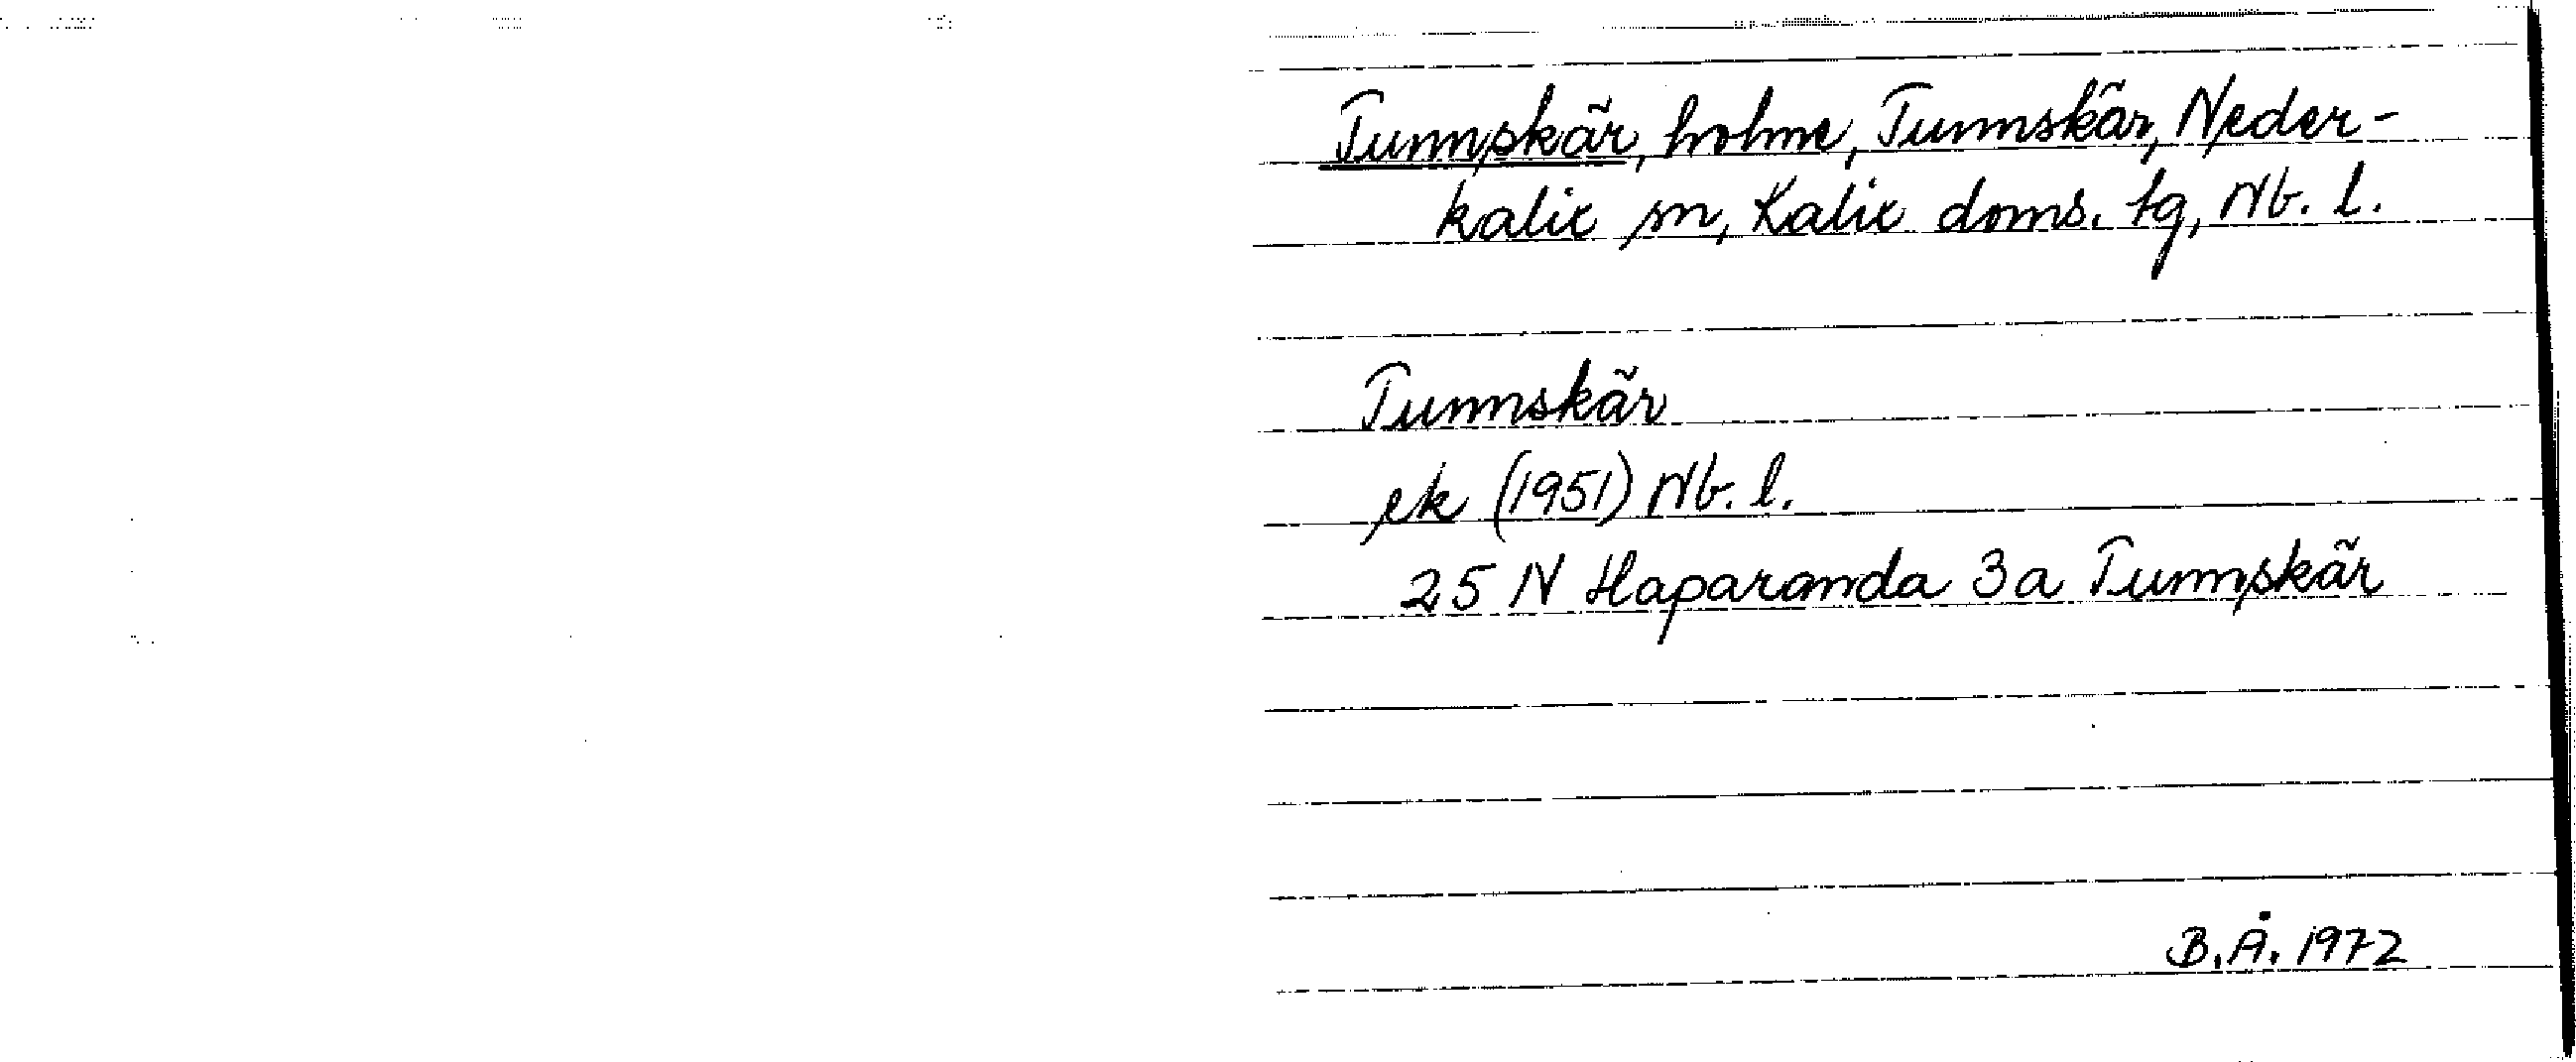 Tunnskär, holme, Tunnskär, Neder-
kalix sn, Kalix doms. tg, Nb. l.
Tunnskär
ek (1951) Nb. l.
25 N Haparanda 3a Tunnskär
B.Å. 1972